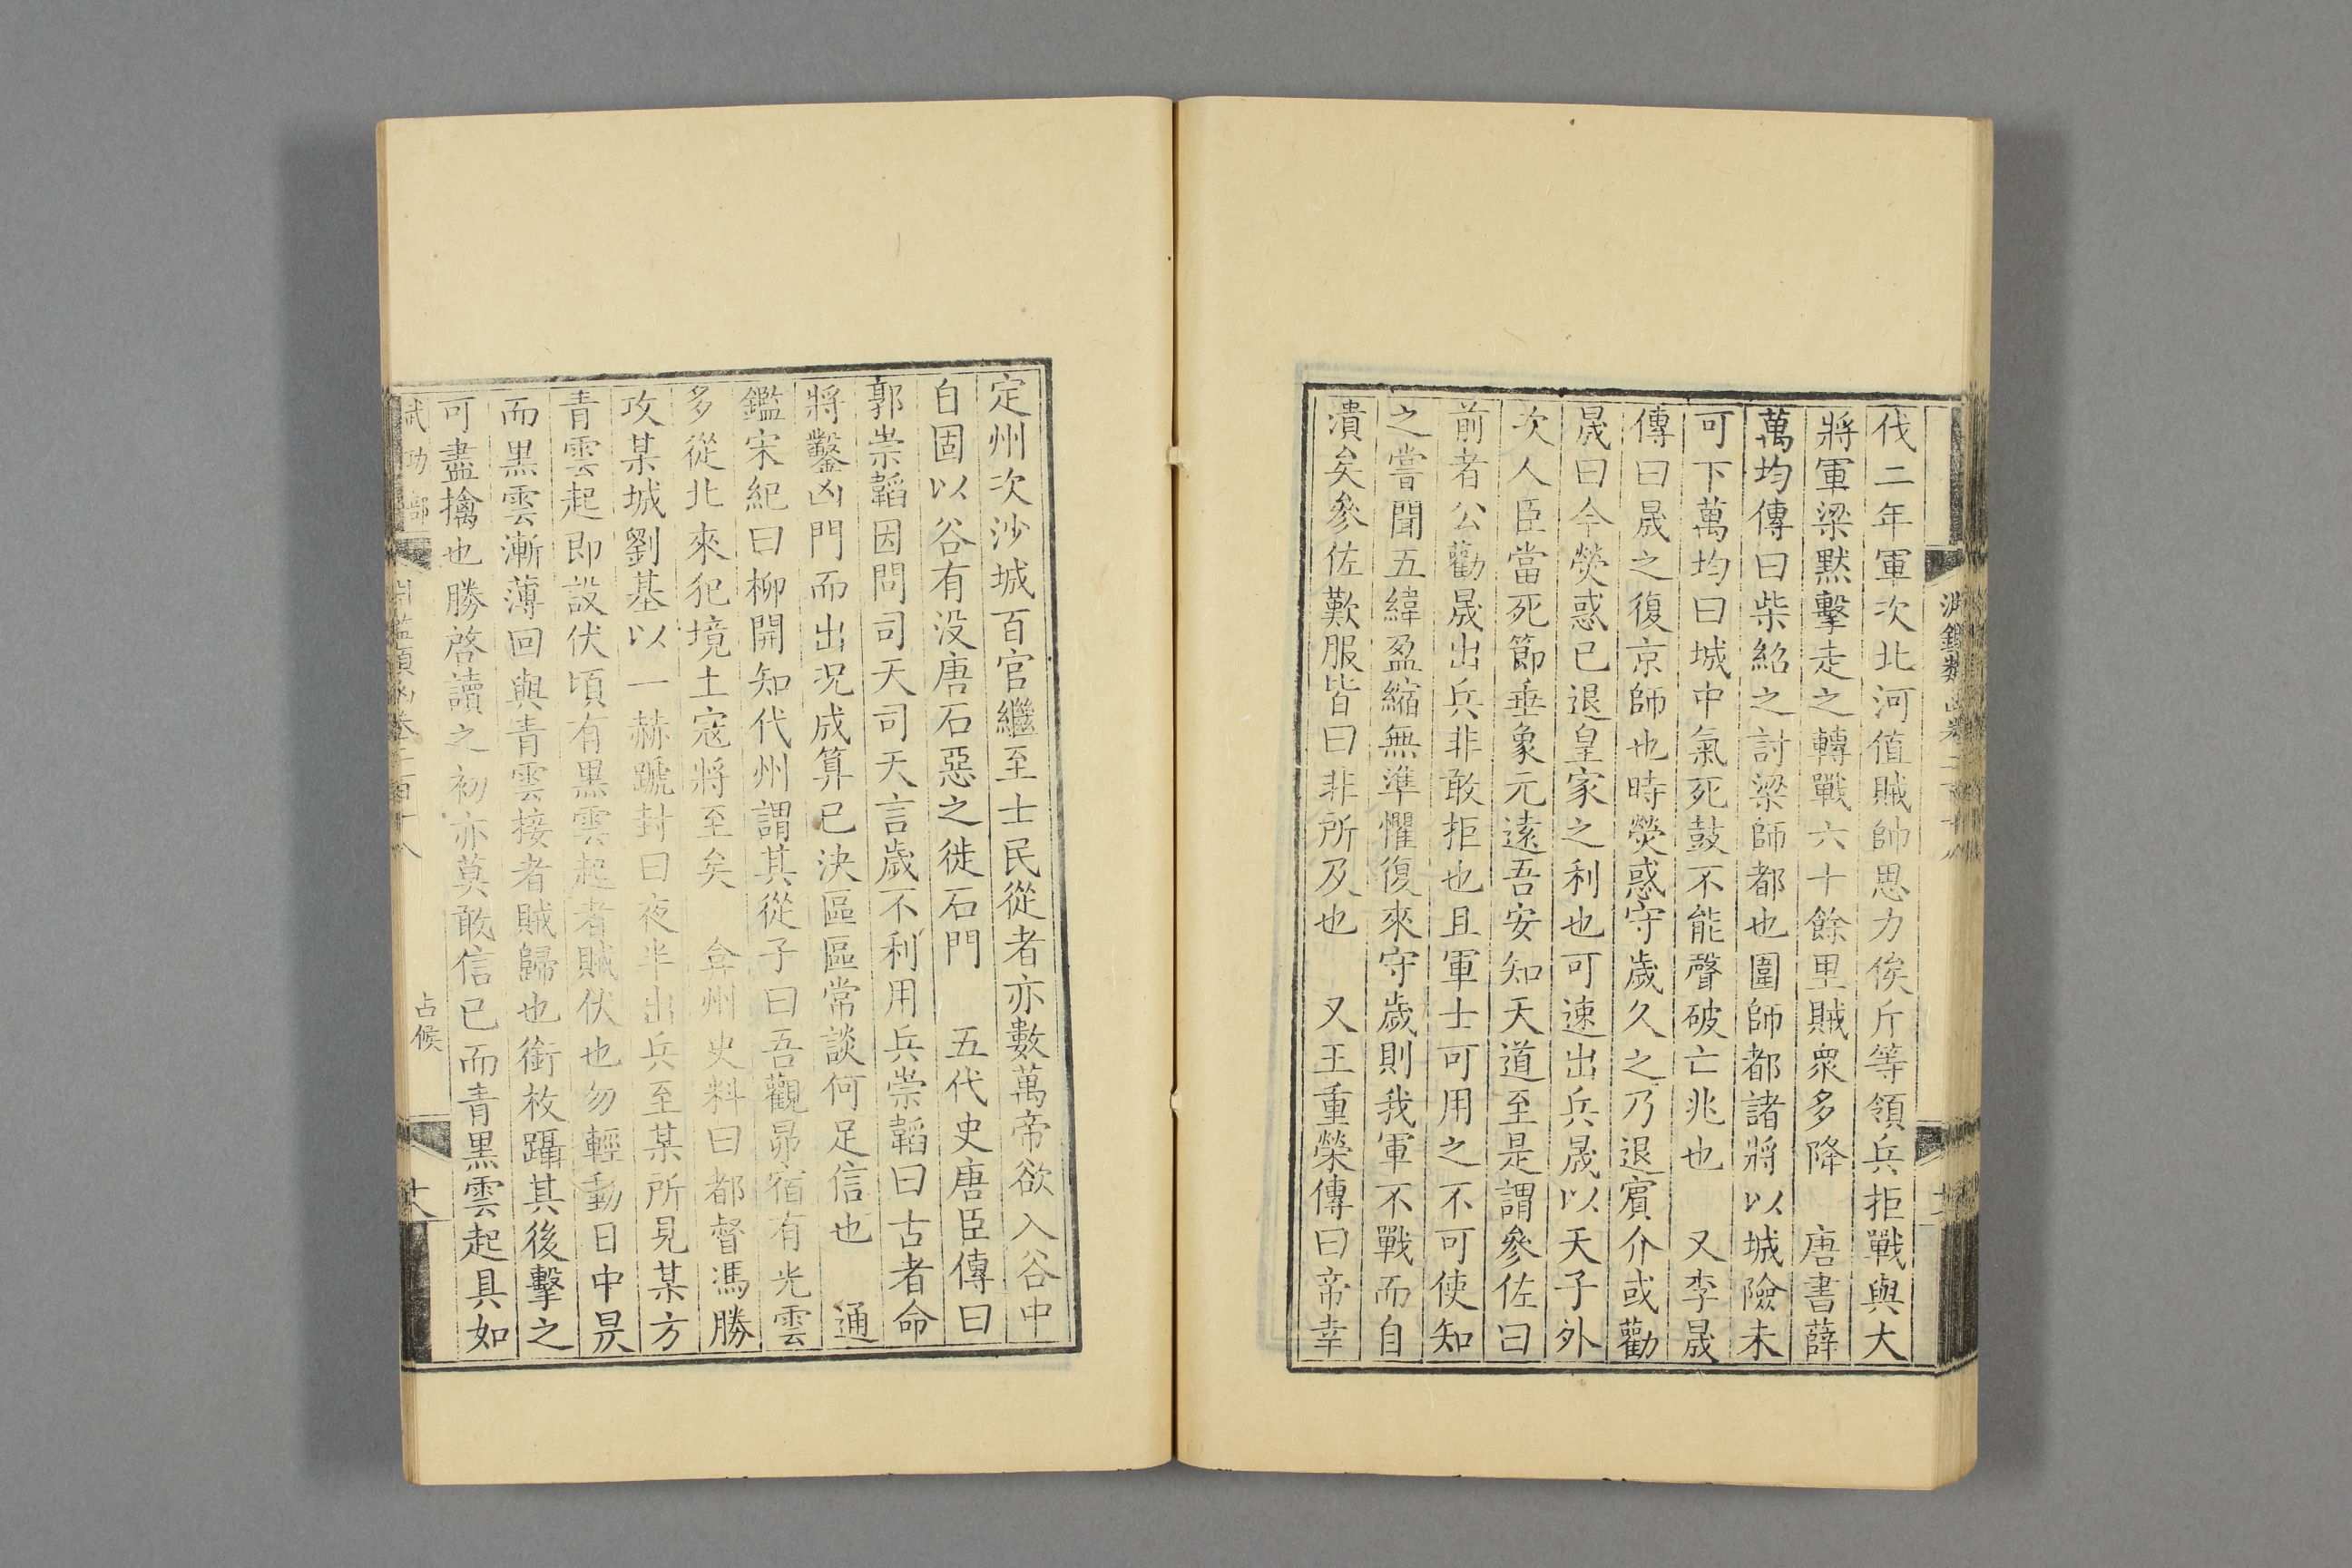 伐二年軍次北河值賊帥思力俟斤等領兵拒戰與大
將軍梁默擊走之轉戰六十餘里賊衆多降　唐書薛
萬均傳曰柴紹之討梁師都也圍師都諸將以城險未
可下萬均曰城中氣死鼓不能聲破亡兆也　又李晟
傳曰晟之復京師也時熒惑守歲久之乃退賓介或勸
晟曰今熒惑已退皇家之利也可速出兵晟以天子外
次人臣當死節垂象元遠吾安知天道至是謂參佐曰
前者公勸晟出兵非敢拒也且軍士可用之不可使知
之嘗聞五緯盈縮無準懼復來守歲則我軍不戰而自
潰矣參佐歎服皆曰非所及也　又王重榮傳曰帝幸
定州次沙城百官繼至士民從者亦數萬帝欲入谷中
自固以谷有没唐石惡之徙石門　五代史唐臣傳曰
郭崇韜因問司天司天言歲不利用兵崇韜曰古者命
將鑿凶門而出況成算已決區區常談何足信也　通
鑑宋紀曰柳開知代州謂其從子曰吾觀昴宿有光雲
多從北來犯境土寇將至矣　弇州史料曰都督馮勝
攻某城劉基以一赫蹏封曰夜半出兵至某所見某方
青雲起即設伏頃有黒雲起者賊伏也勿輕動日中昃
而黒雲漸薄回與青雲接者賊歸也銜枚躡其後擊之
可盡擒也勝啓讀之初亦莫敢信已而青黒雲起具如
武功部
淵鑑類函卷二百十八
占候
十八